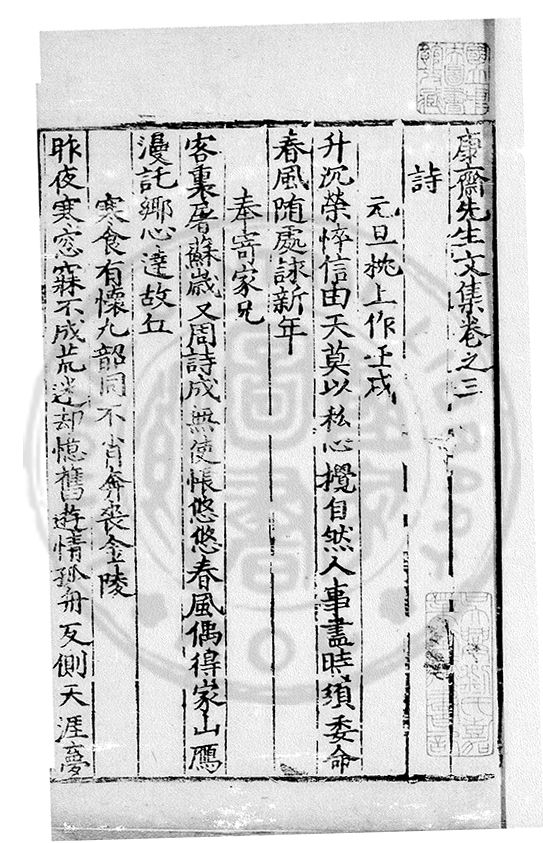 康齋先生文集卷之三
詩
元旦枕上作壬戌
升沉榮悴信由天莫以私心攪自然人事盡時須委命
春風隨處詠新年
奉寄家兄
客裏屠蘇歲又周詩成無使悵悠悠春風偶得家山鴈
漫託鄉心達故丘
寒食有懷九韶同不肖奔喪金陵
昨夜寒窓寐不成荒迷却憶舊遊情孤舟反側天涯夢